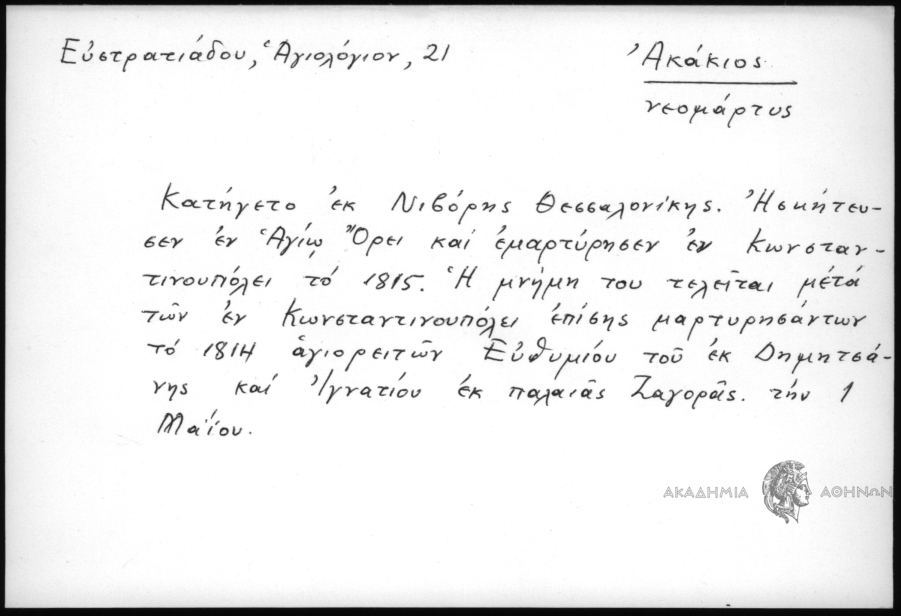 Εὐστρατιάδου, Ἁγιολόγιον, 21
Ἀκάκιος
νεομάρτυς
Κατήγετο ἐκ Νιβόρης Θεσσαλονίκης. Ἠσκήτευ-
σεν ἐν Ἁγίῳ Ὄρει καί ἐμαρτύρησεν ἐν Κωνσταν-
τινουπόλει τό 1815. Ἡ μνήμη του τελεῖται μέτά
τῶν ἐν Κωνσταντινουπόλει ἐπίσης μαρτυρησάντων
τό 1814 ἁγιορειτῶν Εὐθυμίου τοῦ ἐκ Δημητσά-
νης καί Ἰγνατίου ἐκ παλαιᾶς Ζαγορᾶς. τήν 1
Μαΐου.
ΑΚΑΔΗΜΙΑ ΑΘΗΝΩΝ